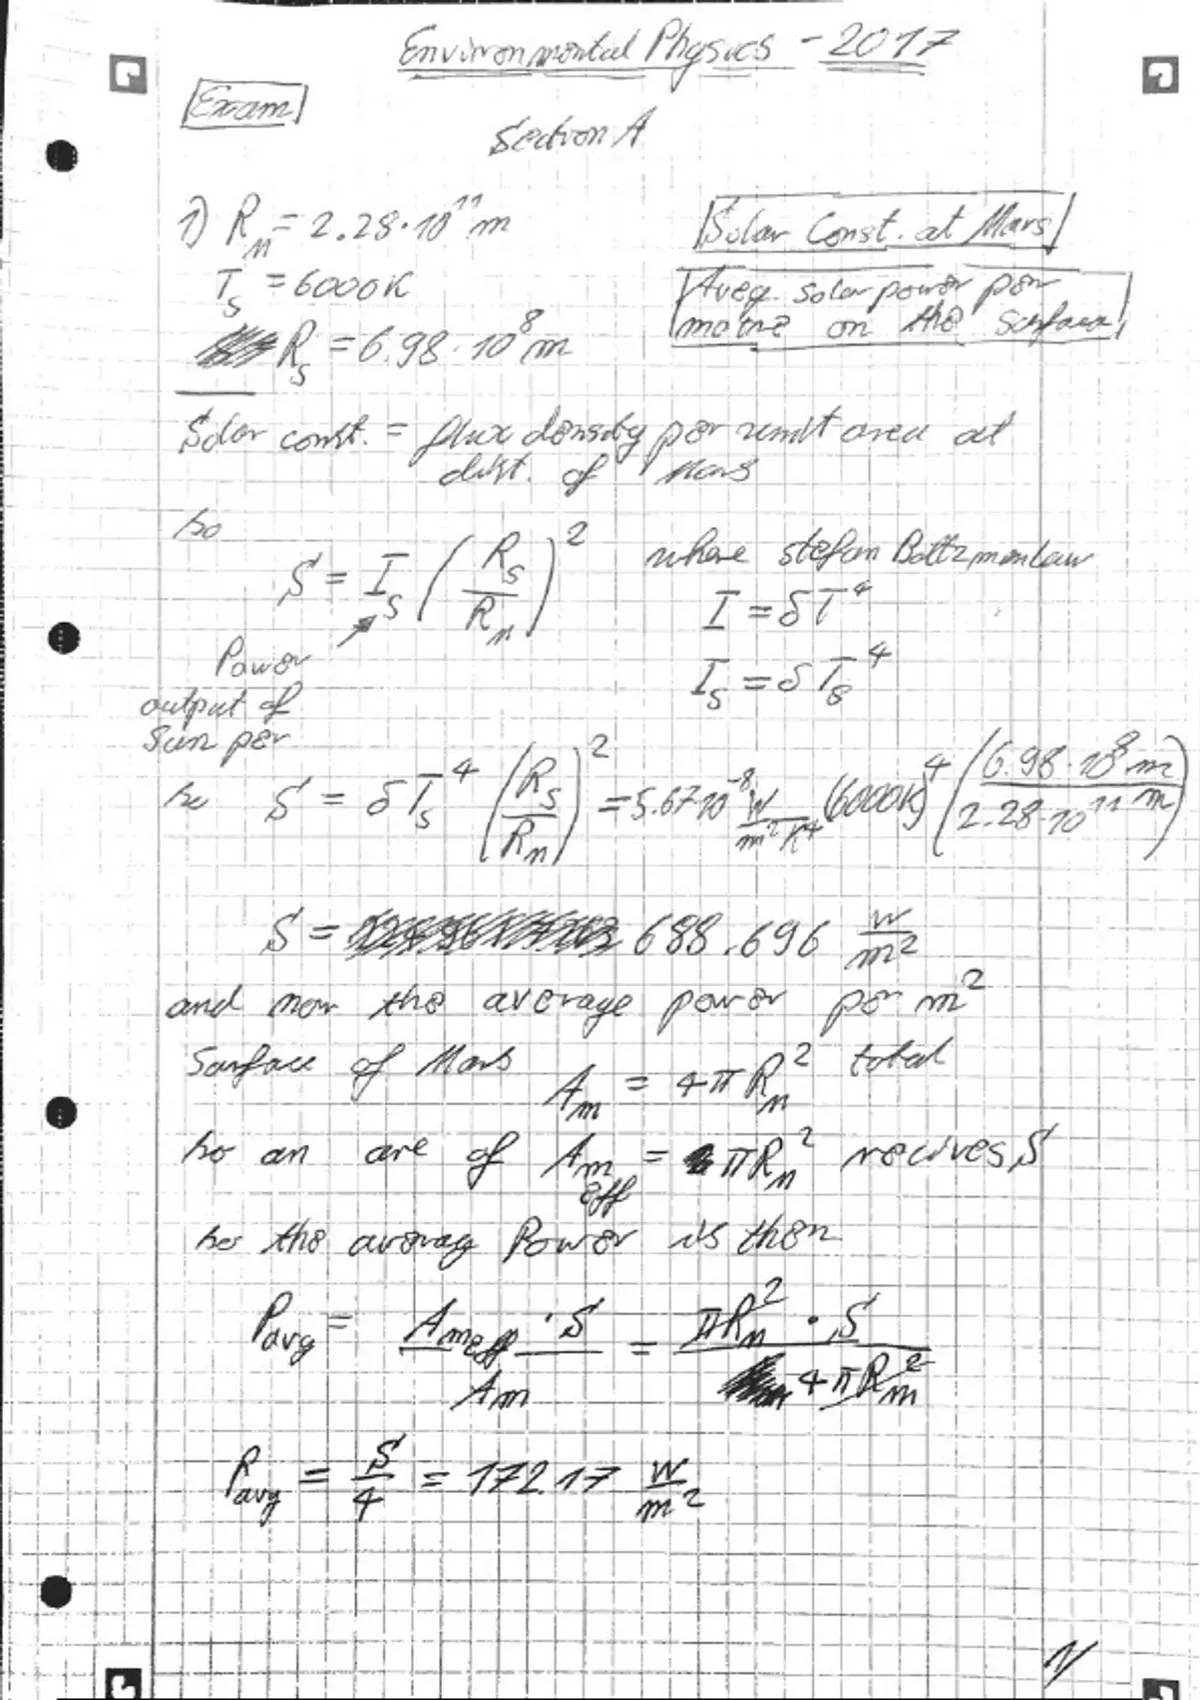 Environmental Physics - 2017
Exam
Section A
1) R_M = 2.28 · 10^11 m
Solar Const. at Mars
T_s = 6000K
Aveg. solar power per
metre on the surface
R_s = 6.98 · 10^8 m
Solar const. = flux density per unit area at
dist. of Mars
so
S = I_s (R_s / R_M)^2 where stefan Boltzman law
I = δT^4
Power
I_s = δT_s^4
output of
Sun per
so S = δT_s^4 (R_s / R_M)^2 = 5.67·10^-8 W/m^2K^4 (6000K)^4 (6.98·10^8 m / 2.28·10^11 m)
S = 688.696 W/m^2
and now the average power per m^2
Surface of Mars A_m = 4πR_M^2 total
so an are of A_m eff = πR_M^2 recives S
so the averag Power is then
P_avg = A_m eff · S / A_m = πR_M^2 · S / 4πR_m^2
P_avg = S/4 = 172.17 W/m^2
1/